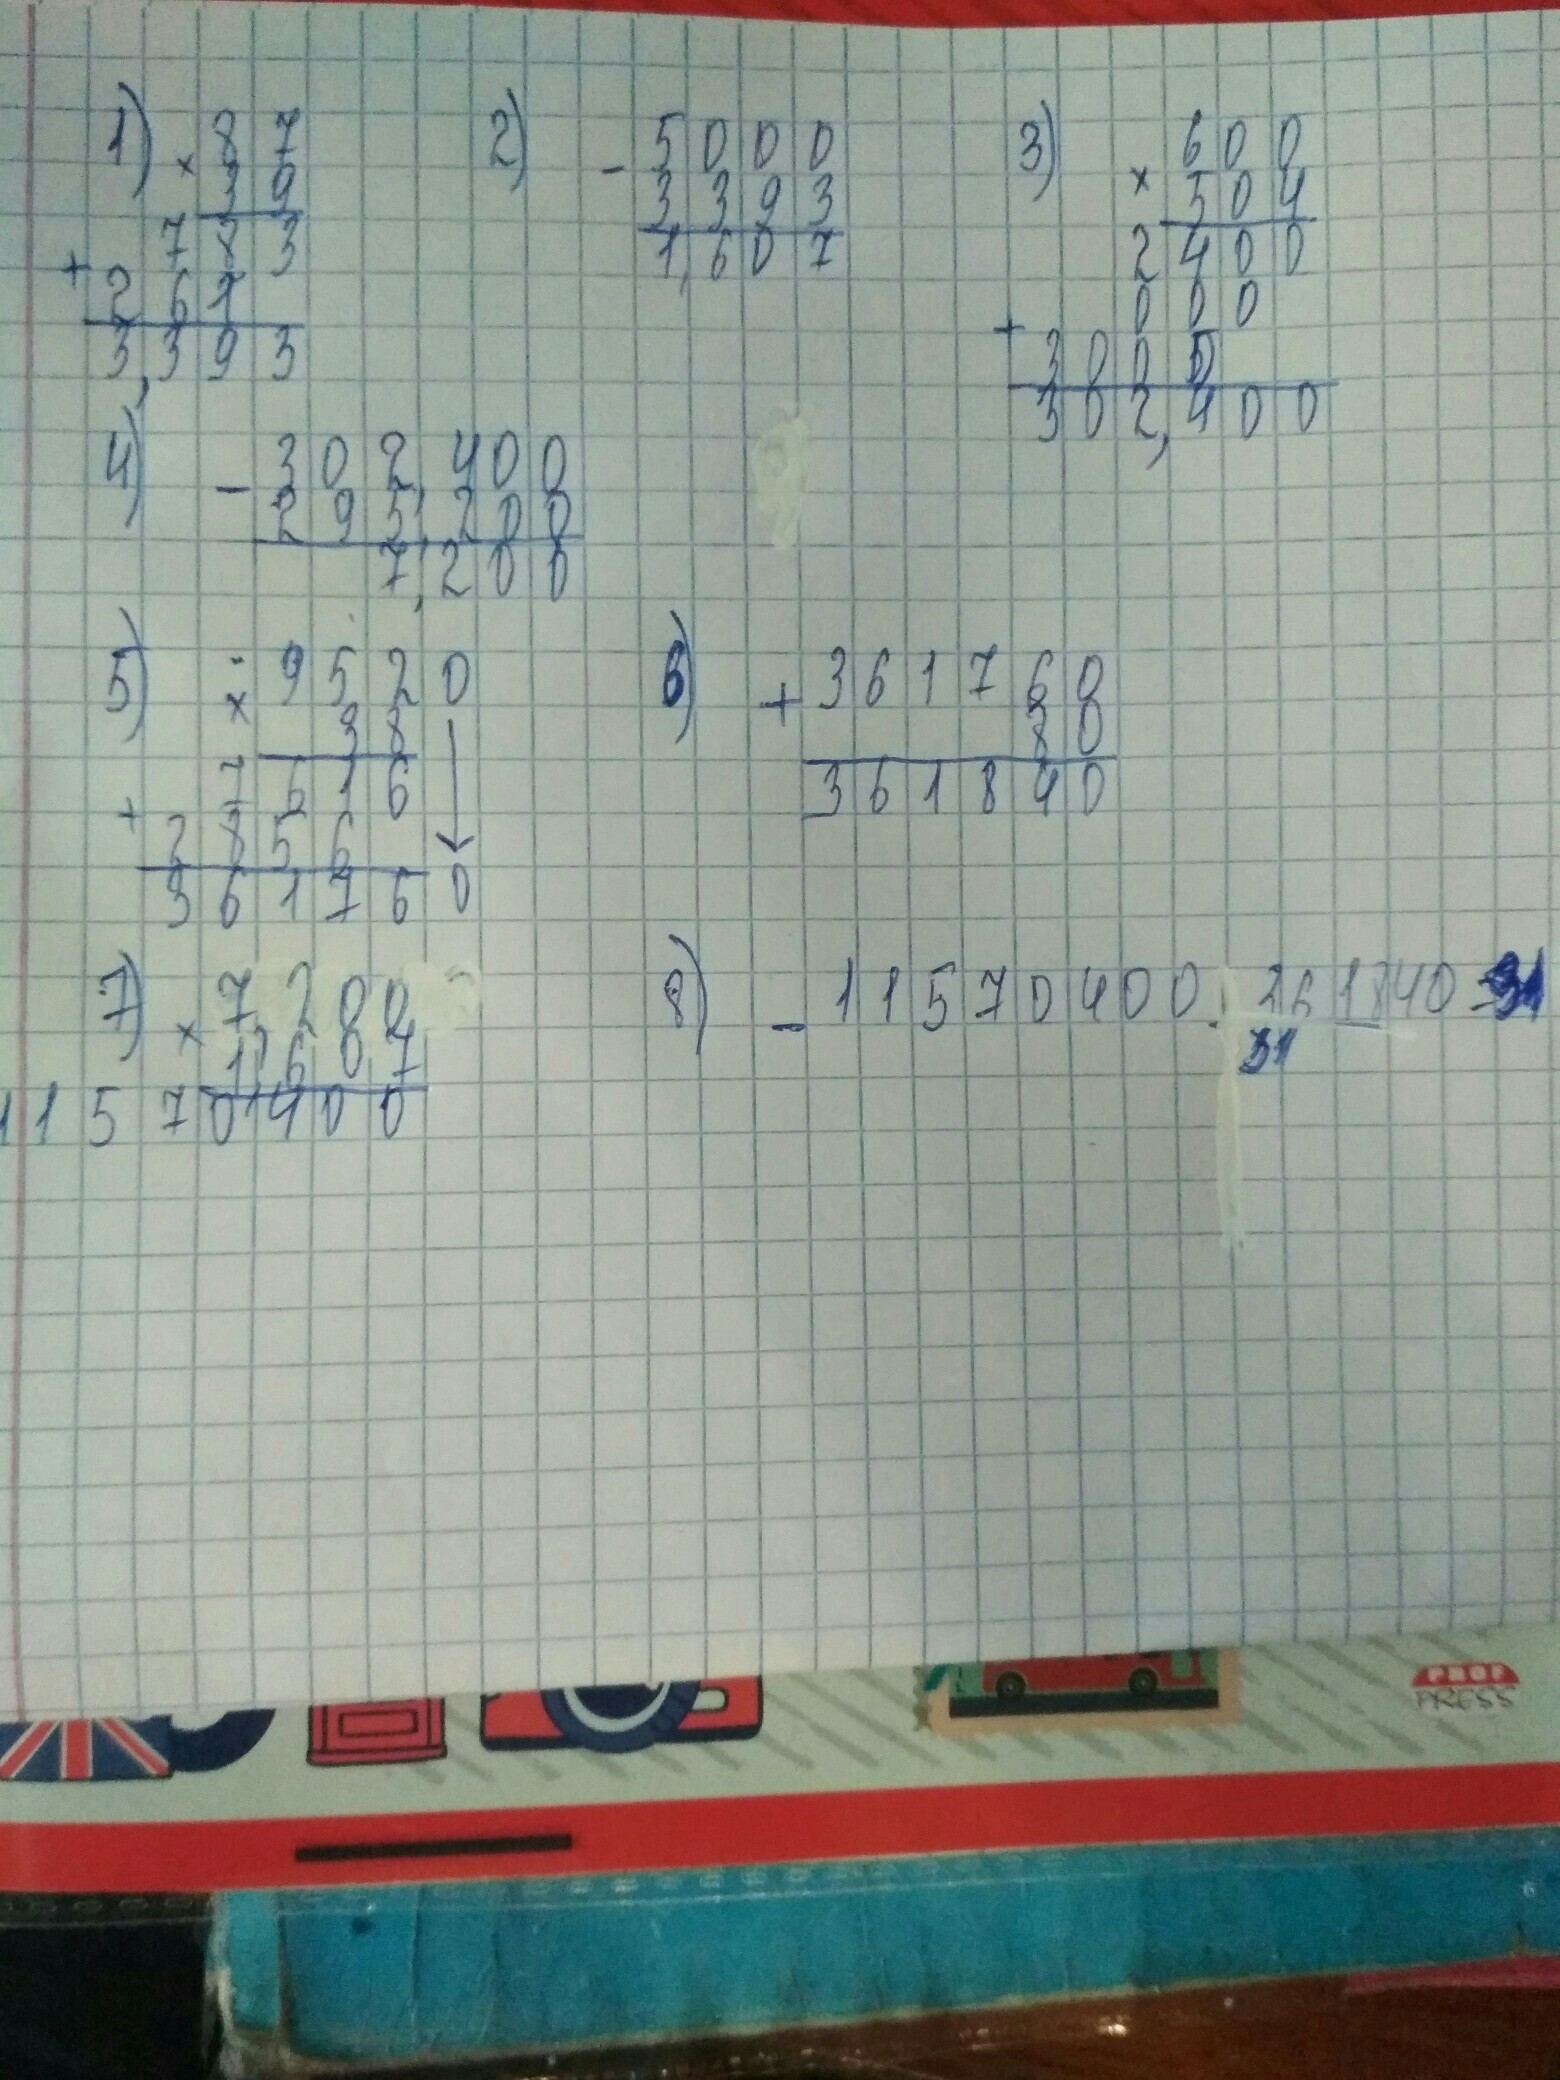 1) × 8 7
3 9
7 8 3
+ 2 6 1
3,3 9 3
2) - 5 0 0 0
3 3 9 3
1,6 0 7
3) × 6 0 0
5 0 4
2 4 0 0
0 0 0
+ 3 0 0
3 0 2,4 0 0
4) - 3 0 2,4 0 0
2 9 5,2 0 0
7,2 0 0
5) × 9 5 2 0
3 8
7 6 1 6
+ 2 8 5 6
3 6 1 7 6 0
6) + 3 6 1 7 6 0
8 0
3 6 1 8 4 0
7) × 7,2 0 0
1,6 0 7
1 1 5 7 0,4 0 0
8) - 1 1 5 7 0 4 0 0 : 361840 =
31
PROF
PRESS